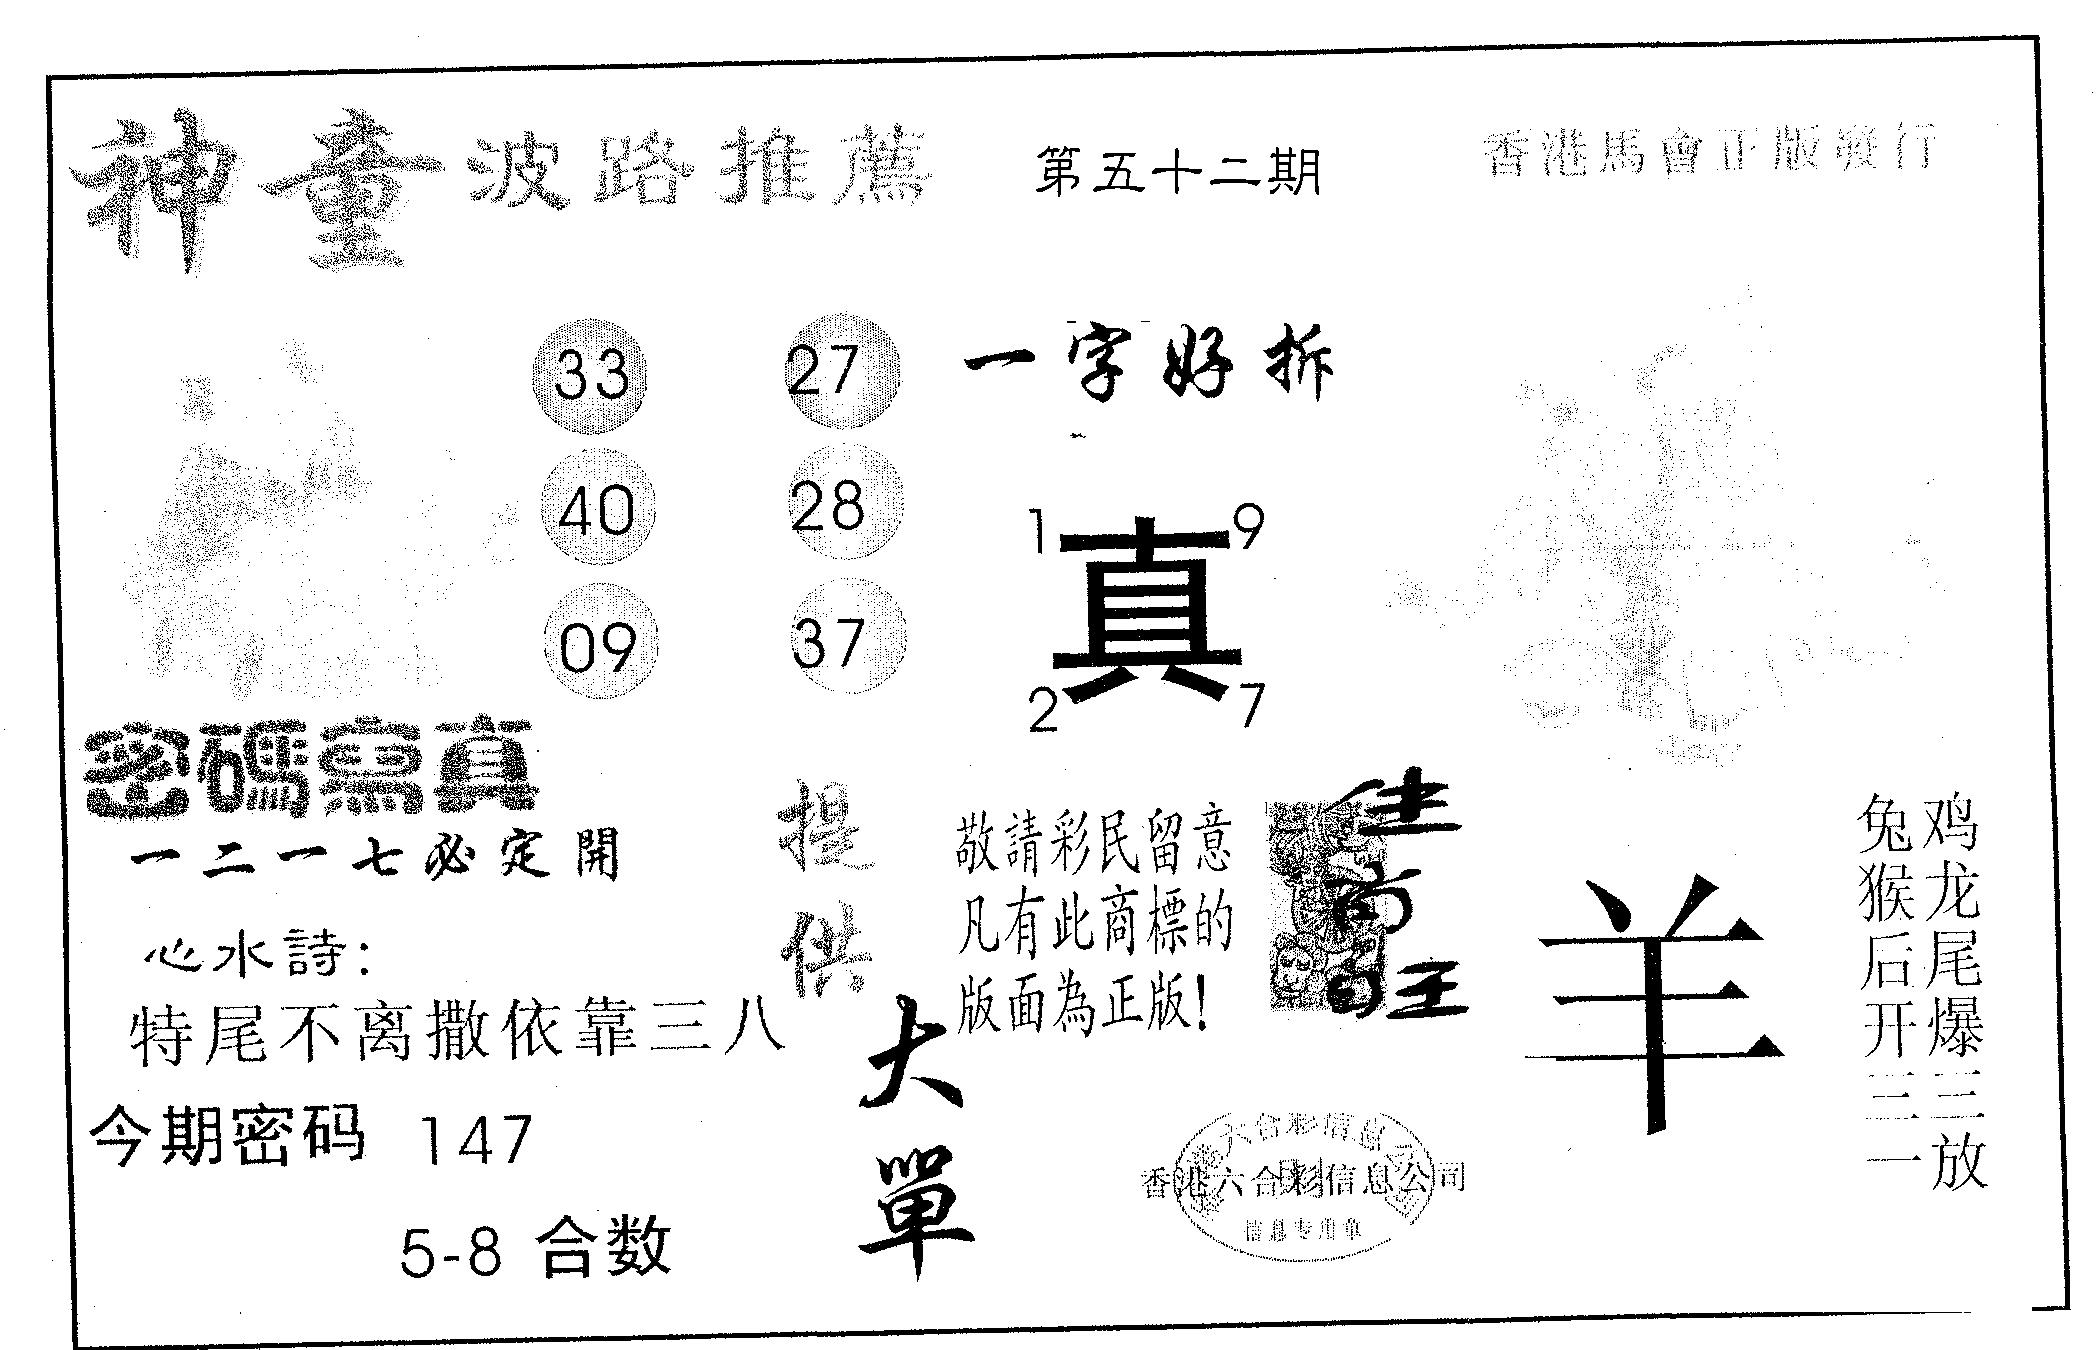 神童波路推薦
第五十二期
香港馬會正版發行
33 27
40 28
09 37
一字好拆
1 9
真
2 7
密碼寫真
一二一七必定開
心水詩:
特尾不离撒依靠三八
今期密码 147
5-8 合数
提供
大單
敬請彩民留意
凡有此商標的
版面為正版!
羊
鸡龙尾爆三三放
兔猴后开三一
香港六合彩信息公司
信息专用章